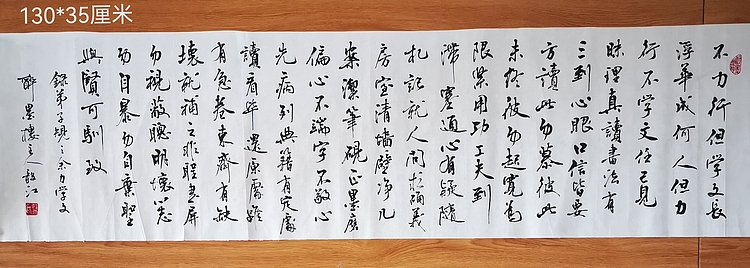 130*35厘米
不力行但学文長
浮華成何人但力
行不学文任己見
昧理真讀書法有
三到心眼口信皆要
方讀此勿慕彼此
未终彼勿起寬為
限紧用功工夫到
滞塞通心有疑隨
札記就人問求确義
房室清墙壁净几
案潔筆硯正墨磨
偏心不端字不敬心
先病列典籍有定處
讀看毕還原處雖
有急卷束齊有缺
壞就補之非聖書屏
勿視蔽聰明壞心志
勿自暴勿自棄聖
與賢可馴致
錄弟子規之余力学文
醉墨樓主人江